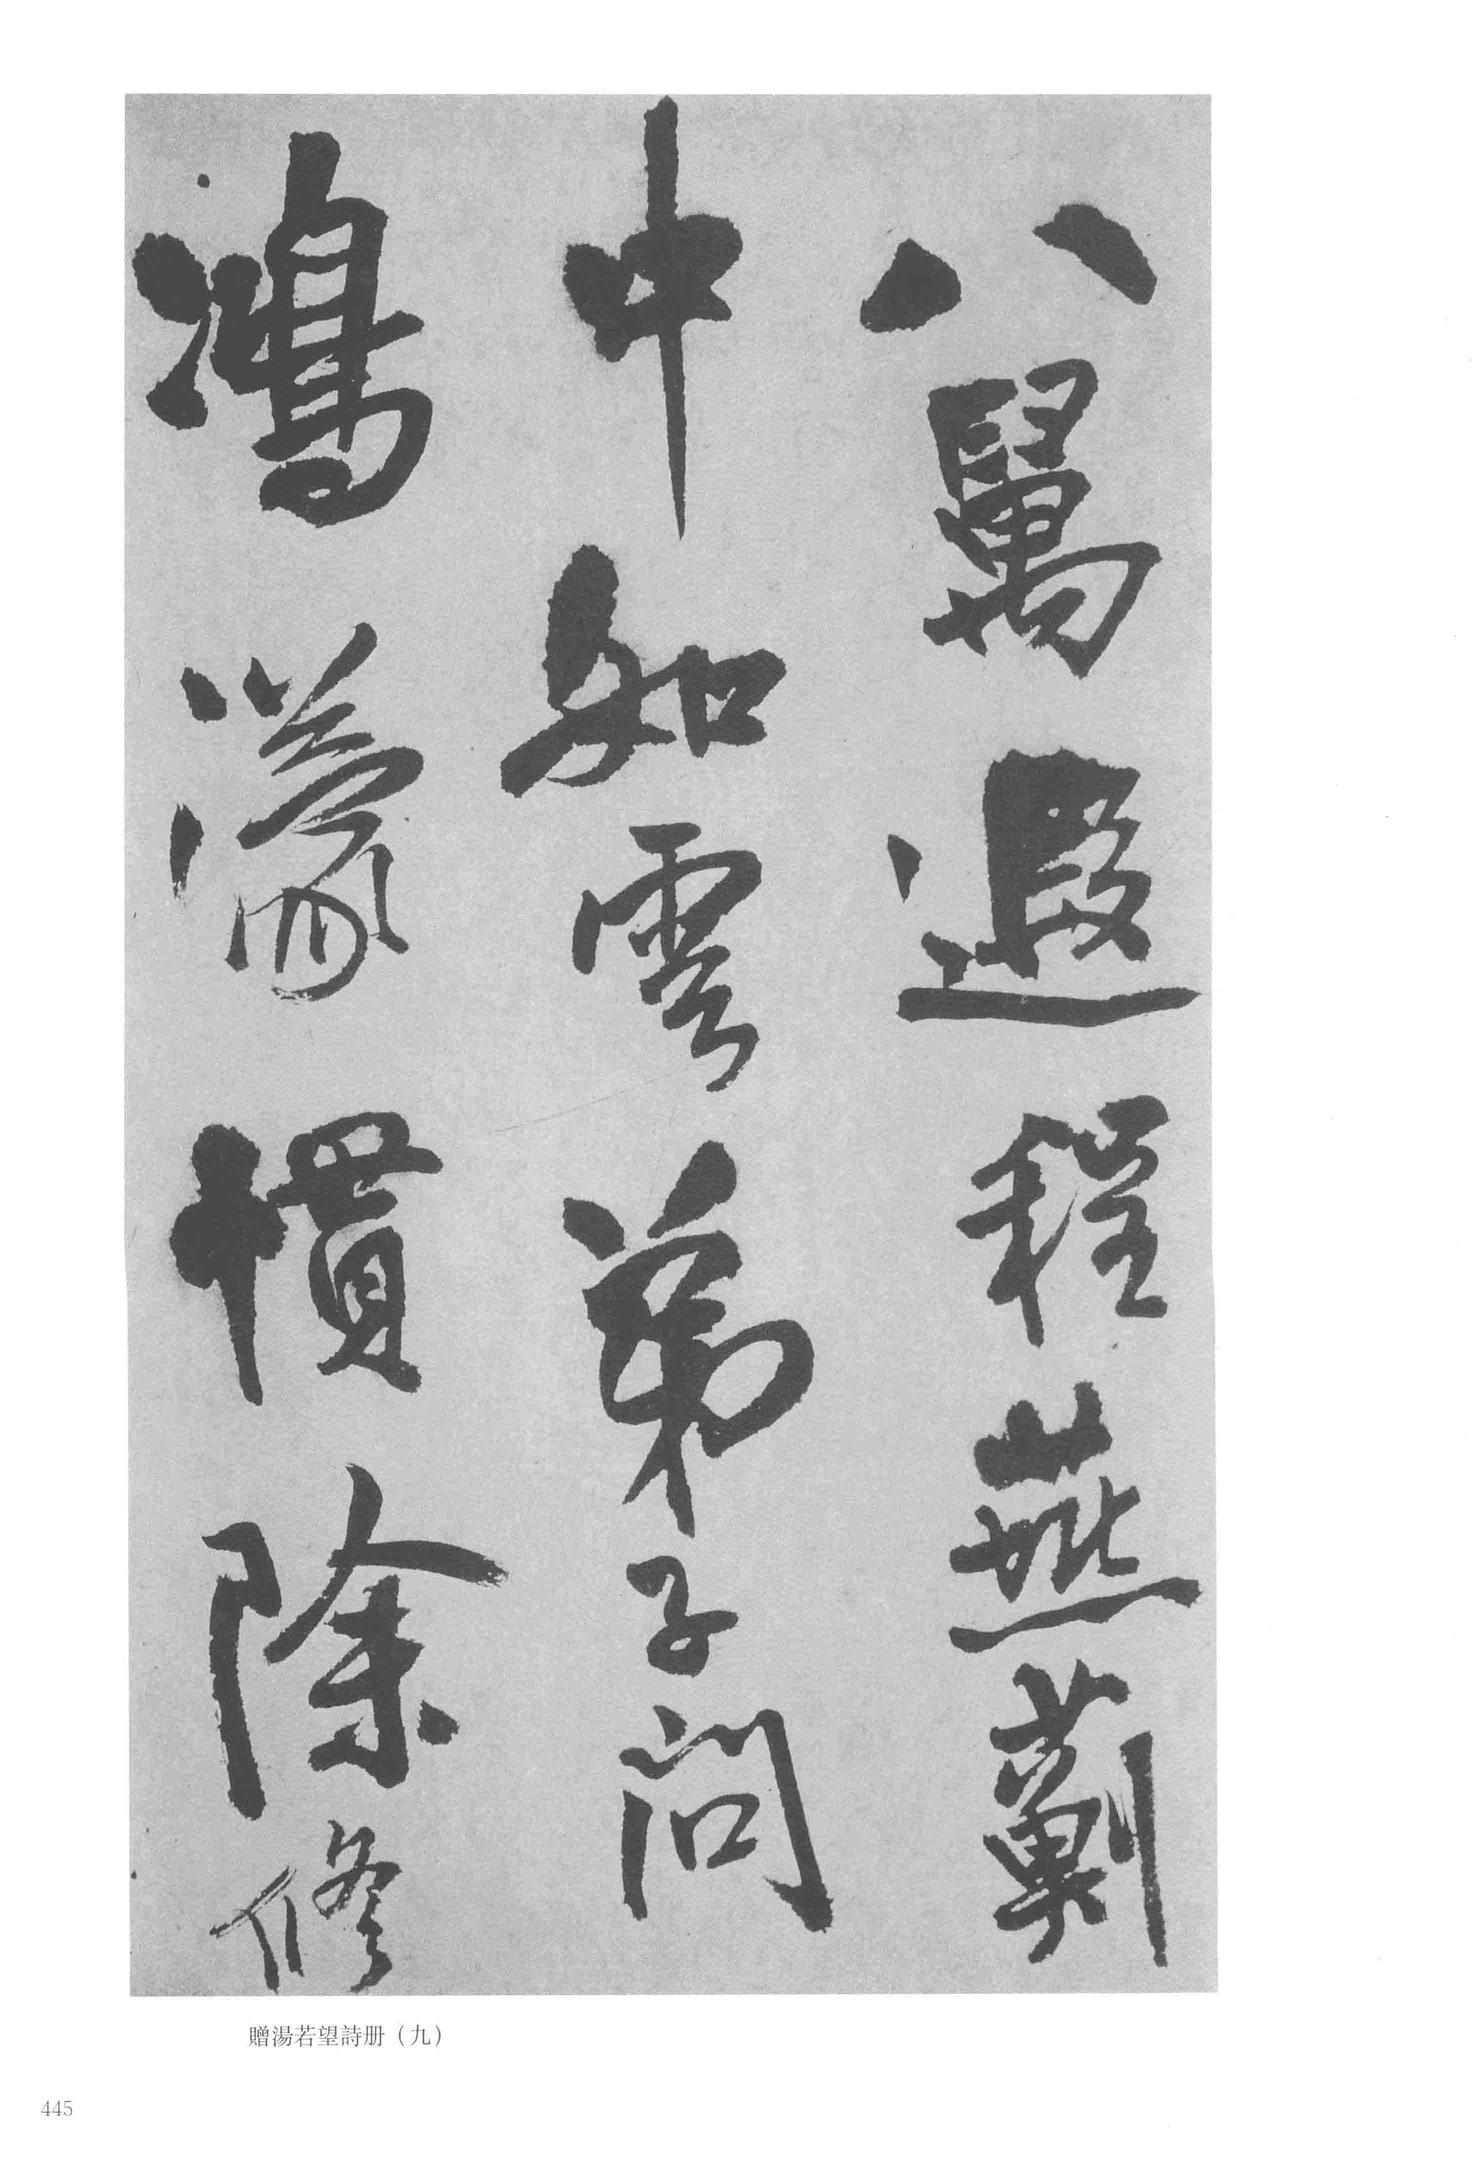 八萬遐程燕薊
中如雲弟子問
鴻濛慣除修
贈湯若望詩册（九）
445